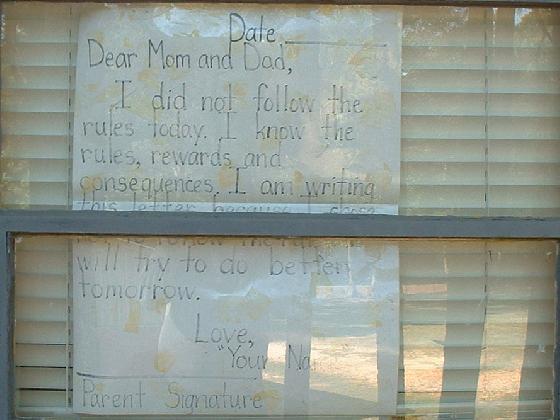 Date, ________
Dear Mom and Dad,
I did not follow the
rules today. I know the
rules, rewards and
consequences. I am writing
this letter because I chose
not to follow the
will try to do better
tomorrow.
Love,
"Your Na
Parent Signature